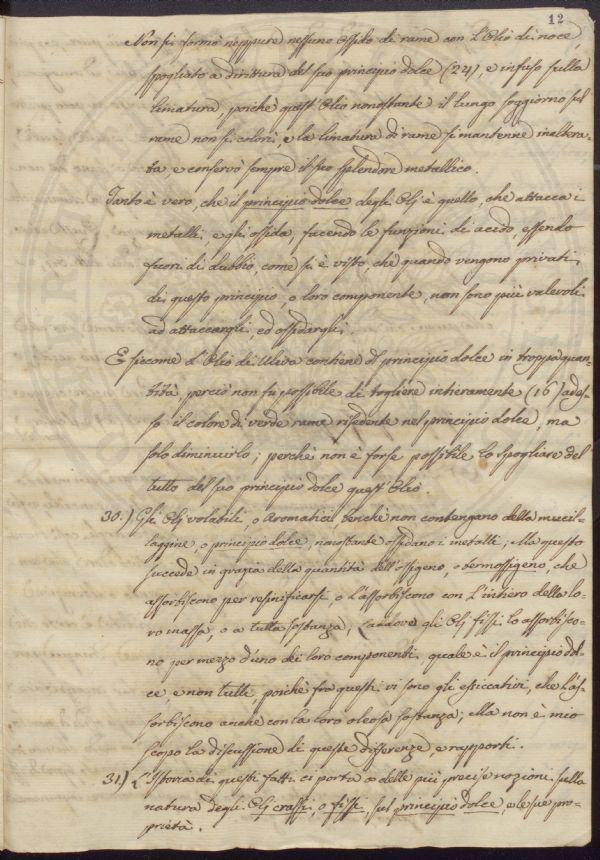 12
Non si formò neppure nessuno ossido di rame con l'Olio di noce,
spogliato a dirittura del suo principio dolce (24), e infuso sulla
limatura, poichè quest'Olio nonostante il lungo soggiorno sul
rame non si colorì, e la limatura di rame si mantenne inaltera-
ta, e conservò sempre il suo splendore metallico.
Tanto è vero, che il principio dolce degli Olj è quello, che attacca i
metalli, e gli ossida, facendo le funzioni di acido, essendo
fuori di dubbio, come si è visto, che quando vengono privati
di questo principio, o loro componente, non sono più valevoli
ad attaccargli, ed ossidargli.
E siccome l'Olio di Uliva contiene il principio dolce in troppa quan-
tità, perciò non fu possibile di togliere intieramente (16) ades-
so il colore di verde rame risedente nel principio dolce, ma
solo diminuirlo; perchè non è forse possibile lo spogliare del
tutto del suo principio dolce quest'Olio.
30.) Gli Olj volatili, o Aromatici benchè non contengano della mucil-
laggine, o principio dolce, nonostante ossidano i metalli; Ma questo
succede in grazia della quantità dell'ossigeno, o termossigeno, che
assorbiscono per resinificarsi, o l'assorbiscono con l'intiero della lo-
ro massa, o a tutta sostanza, laddove gli Olj fissi lo assorbisco-
no per mezzo d'uno dei loro componenti, quale è il principio dol-
ce, e non tutti, poichè fra questi vi sono gli essiccativi, che l'as-
sorbiscono anche con la loro oleosa sostanza; Ma non è mio
scopo la discussione di queste differenze, e rapporti.
31.) L'Istoria di questi fatti ci porta a delle più precise nozioni sulla
natura degli Olj crassi, o fissi, sul principio dolce, e le sue pro-
prietà.